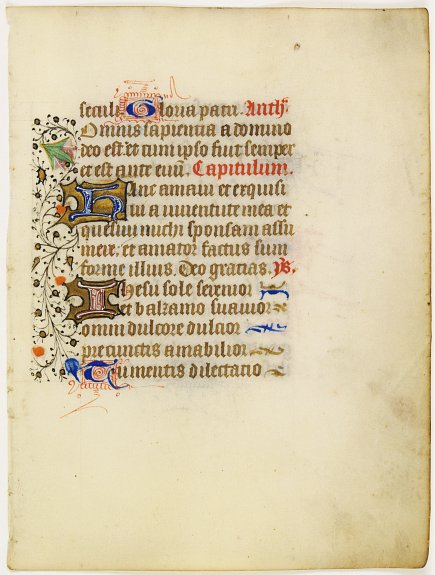 seculi Gloria patri. Anth'.
Omnis sapientia a domino
deo est. et cum ipso fuit semper
et est ante euū. Capitulum.
Hanc amaui et exquisi
ui a iuuentute mea et
quesiui michi sponsam assu
mere. et amator factus sum
forme illius. Deo gracias. ps.
Ihesu sole serenior
et balzamo suauior
omni dulcore dulcior
pre cunctis amabilior
Tu mentis delectatio